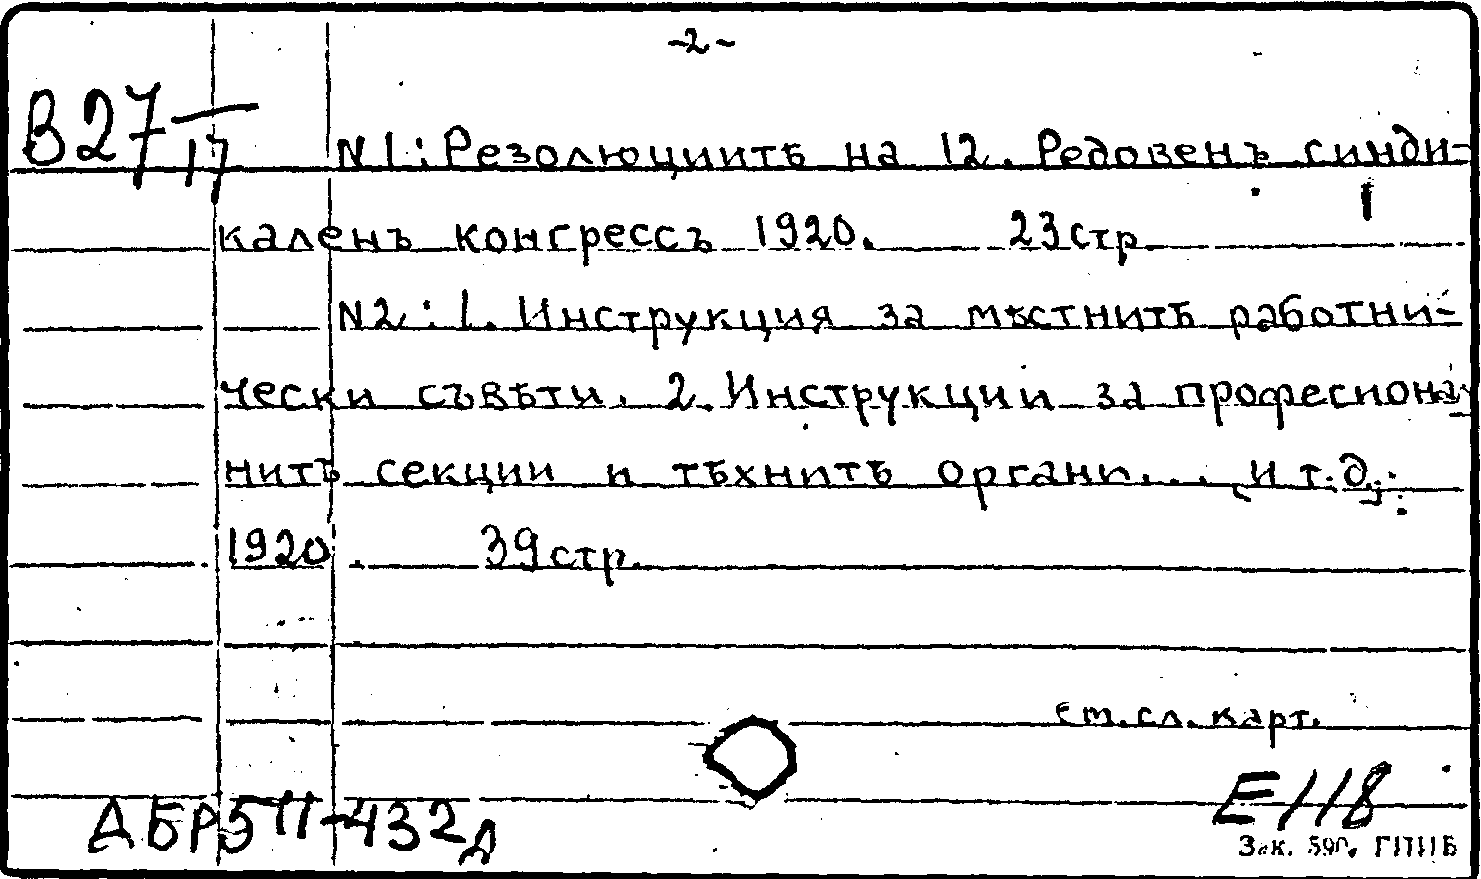 -2-
В27/17
N1: Резолюциитѣ на 12. Редовенъ синди-
каленъ конгрессъ 1920. 23 стр.
N2: 1. Инструкция за мѣстнитѣ работни-
чески съвѣти. 2. Инструкции за професиона-
нитѣ секции и тѣхнитѣ органи... и т.д.
1920. 39 стр.
см. сл. карт.
E118
Зак. 590. ГПИБ